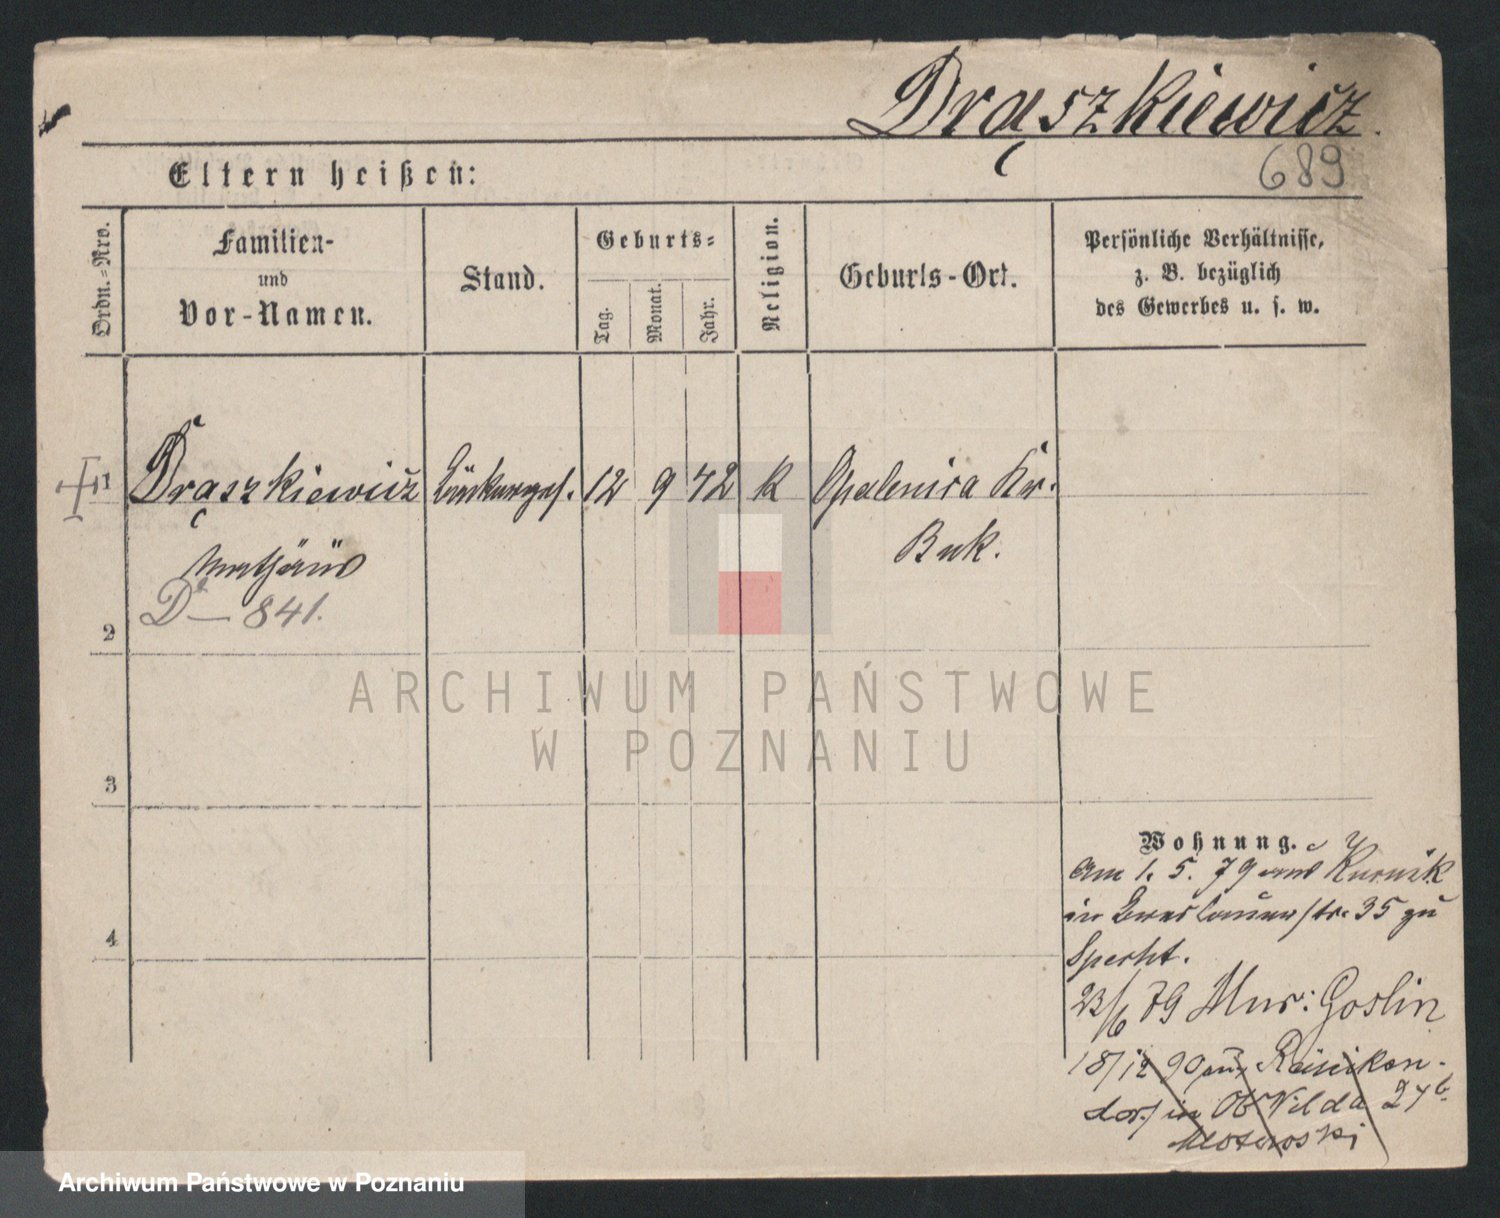 Drąszkiewicz.
Eltern heißen:
689
Ordn.=Nro.
Familien-
und
Vor-Namen.
Stand.
Geburts=
Tag.
Monat.
Jahr.
Religion.
Geburts-Ort.
Persönliche Verhältnisse,
z. B. bezüglich
des Gewerbes u. s. w.
1 Drąszkiewicz Bäckerges. 12 9 42 K Opalenica Kr.
Buk.
Mathäus
D 841.
2
ARCHIWUM PAŃSTWOWE
W POZNANIU
3
Wohnung.
Am 1. 5. 79 aus Kurnik
in Breslauerstr. 35 zu
Specht.
4
23/6 79 Mur: Goslin
18/12 90 aus
dorf in Ob Wilda 27b
Archiwum Państwowe w Poznaniu